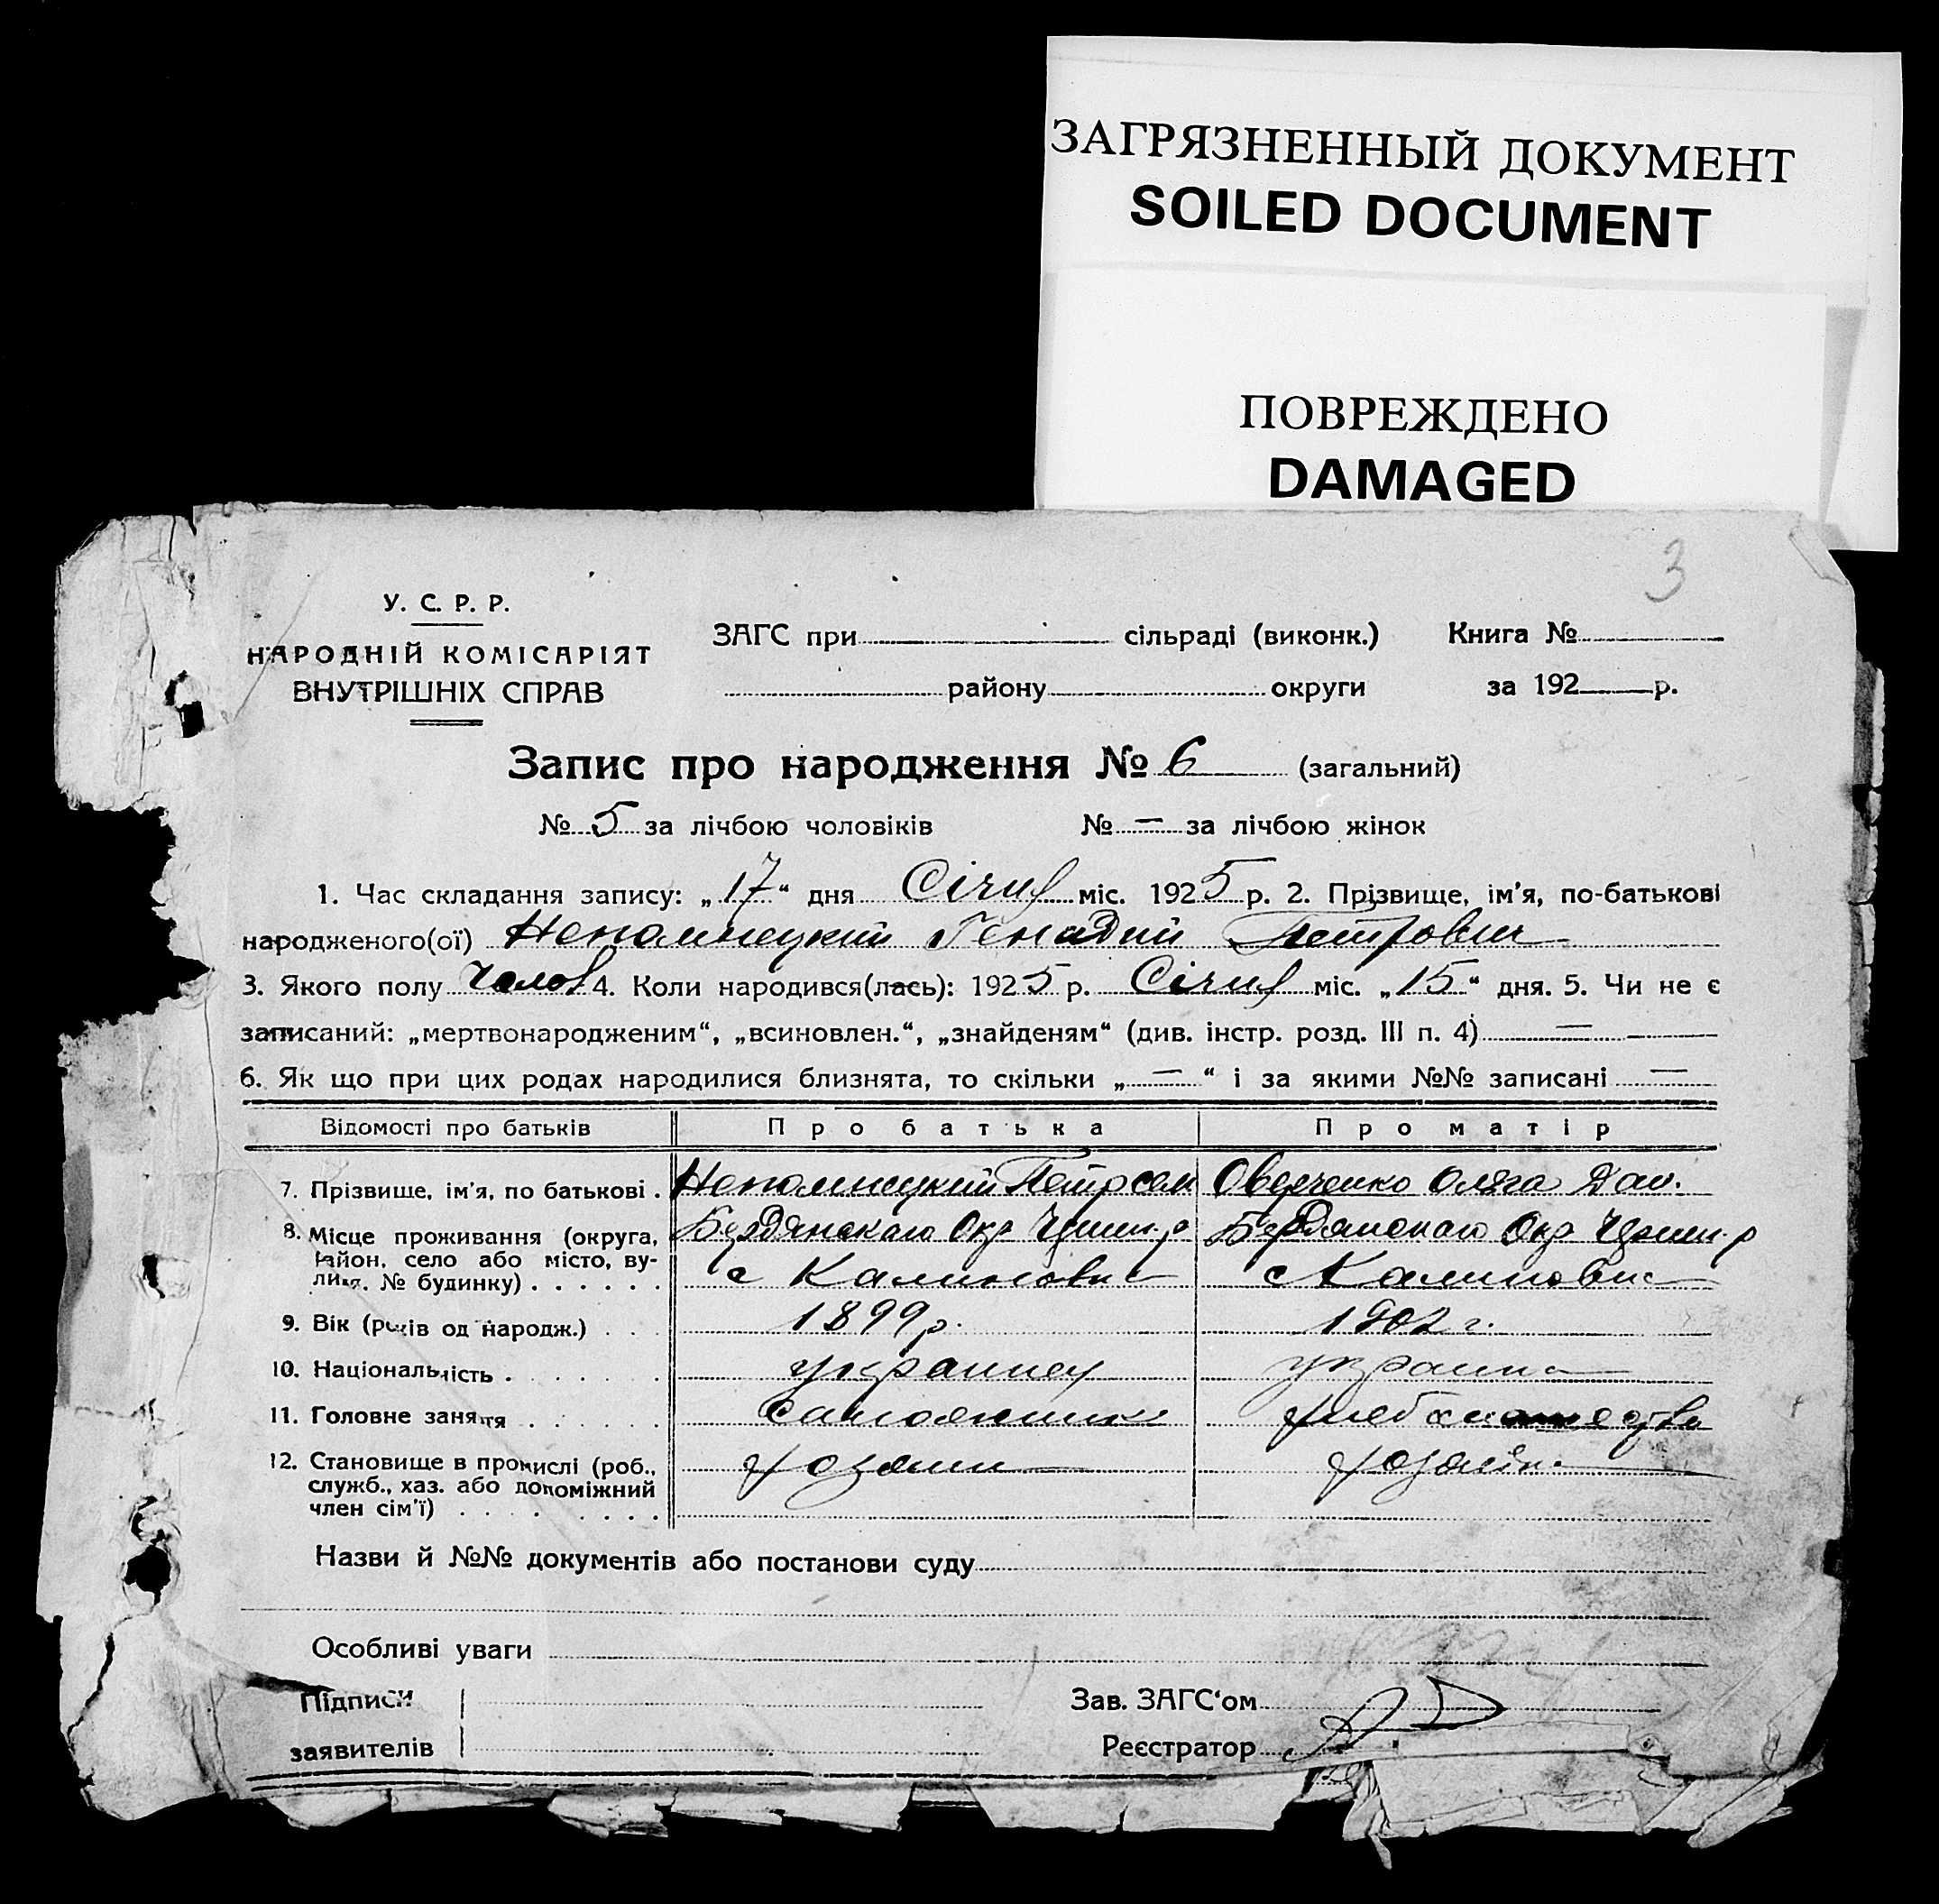 ЗАГРЯЗНЕННЫЙ ДОКУМЕНТ
SOILED DOCUMENT
ПОВРЕЖДЕНО
DAMAGED
3
У. С. Р. Р.
НАРОДНІЙ КОМІСАРІЯТ
ВНУТРІШНІХ СПРАВ
ЗАГС при сільраді (виконк.) Книга №
району округи за 192 р.
Запис про народження № 6 (загальний)
№ 5 за лічбою чоловіків № — за лічбою жінок
1. Час складання запису: „17“ дня Січня міс. 1925 р. 2. Прізвище, ім'я, по-батькові
народженого(ої) Непомнецкий Генадий Петрович
3. Якого полу Чолов 4. Коли народився(лась): 1925 р. Січня міс. „15“ дня. 5. Чи не є
записаний: „мертвонародженим“, „всиновлен.“, „знайденям“ (див. інстр. розд. III п. 4) —
6. Як що при цих родах народилися близнята, то скільки „—“ і за якими №№ записані —
Відомості про батьків Про батька Про матір
7. Прізвище, ім'я, по батькові . Непомнецкий Петр Овдеченко Ольга Дан.
8. Місце проживання (округа, район, село або місто, вулиця, № будинку) . . . . . . Бердянскаго Окр с Калиновка Бердянскаго Окр с Калиновка
9. Вік (років од народж.) . . . 1899р. 1902 г.
10. Національність . . . . . . . украинец украинка
11. Головне заняття . . . . . .
12. Становище в промислі (роб., служб., хаз. або допоміжний член сім'ї) . . . . . . . . хозяин хозяйн.
Назви й №№ документів або постанови суду
Особливі уваги
Підписи Зав. ЗАГС'ом
заявителів Реєстратор